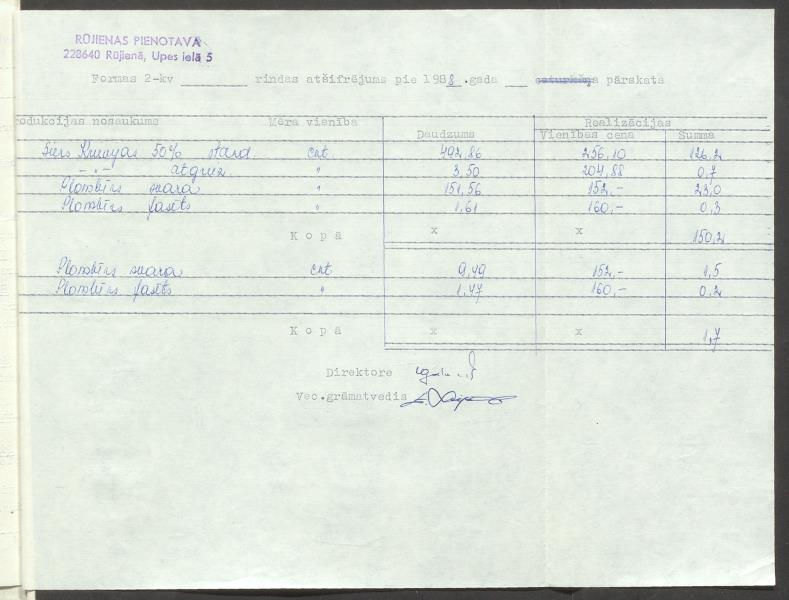 RŪJIENAS PIENOTAVA
228640 Rūjienā, Upes ielā 5
Formas 2-kv rindas atšifrējums pie 1988.gada pārskata
rodukcijas nosaukums Mēra vienība Realizācijas
Daudzums Vienības cena Summa
Siers Krievijas 50% stand. cnt. 492,86 256,10 126,2
-"- atgriez. " 3,50 204,88 0,7
Plombīrs svara " 151,56 152,- 23,0
Plombīrs fasēts " 1,61 160,- 0,3
Kopā x x 150,2
Plombīrs svara cnt 9,49 152,- 1,5
Plombīrs fasēts " 1,47 160,- 0,2
Kopā x x 1,7
Direktore
Vec.grāmatvedis